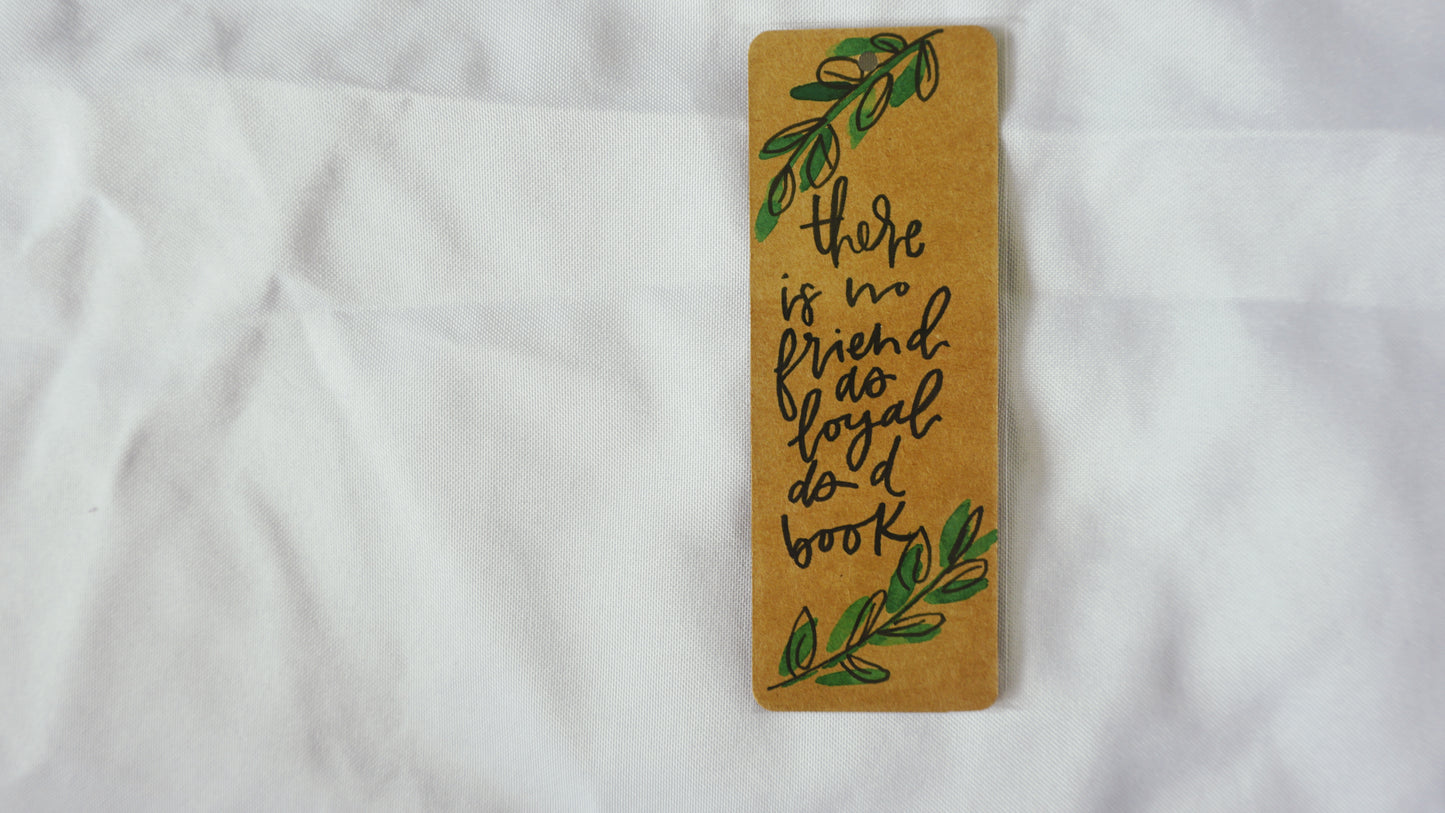 there
is no
friend
as
loyal
as a
book